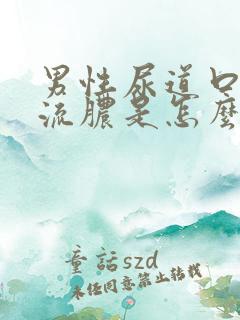 男性尿道口
流膿是怎麼
童話szd
未经同意禁止转载